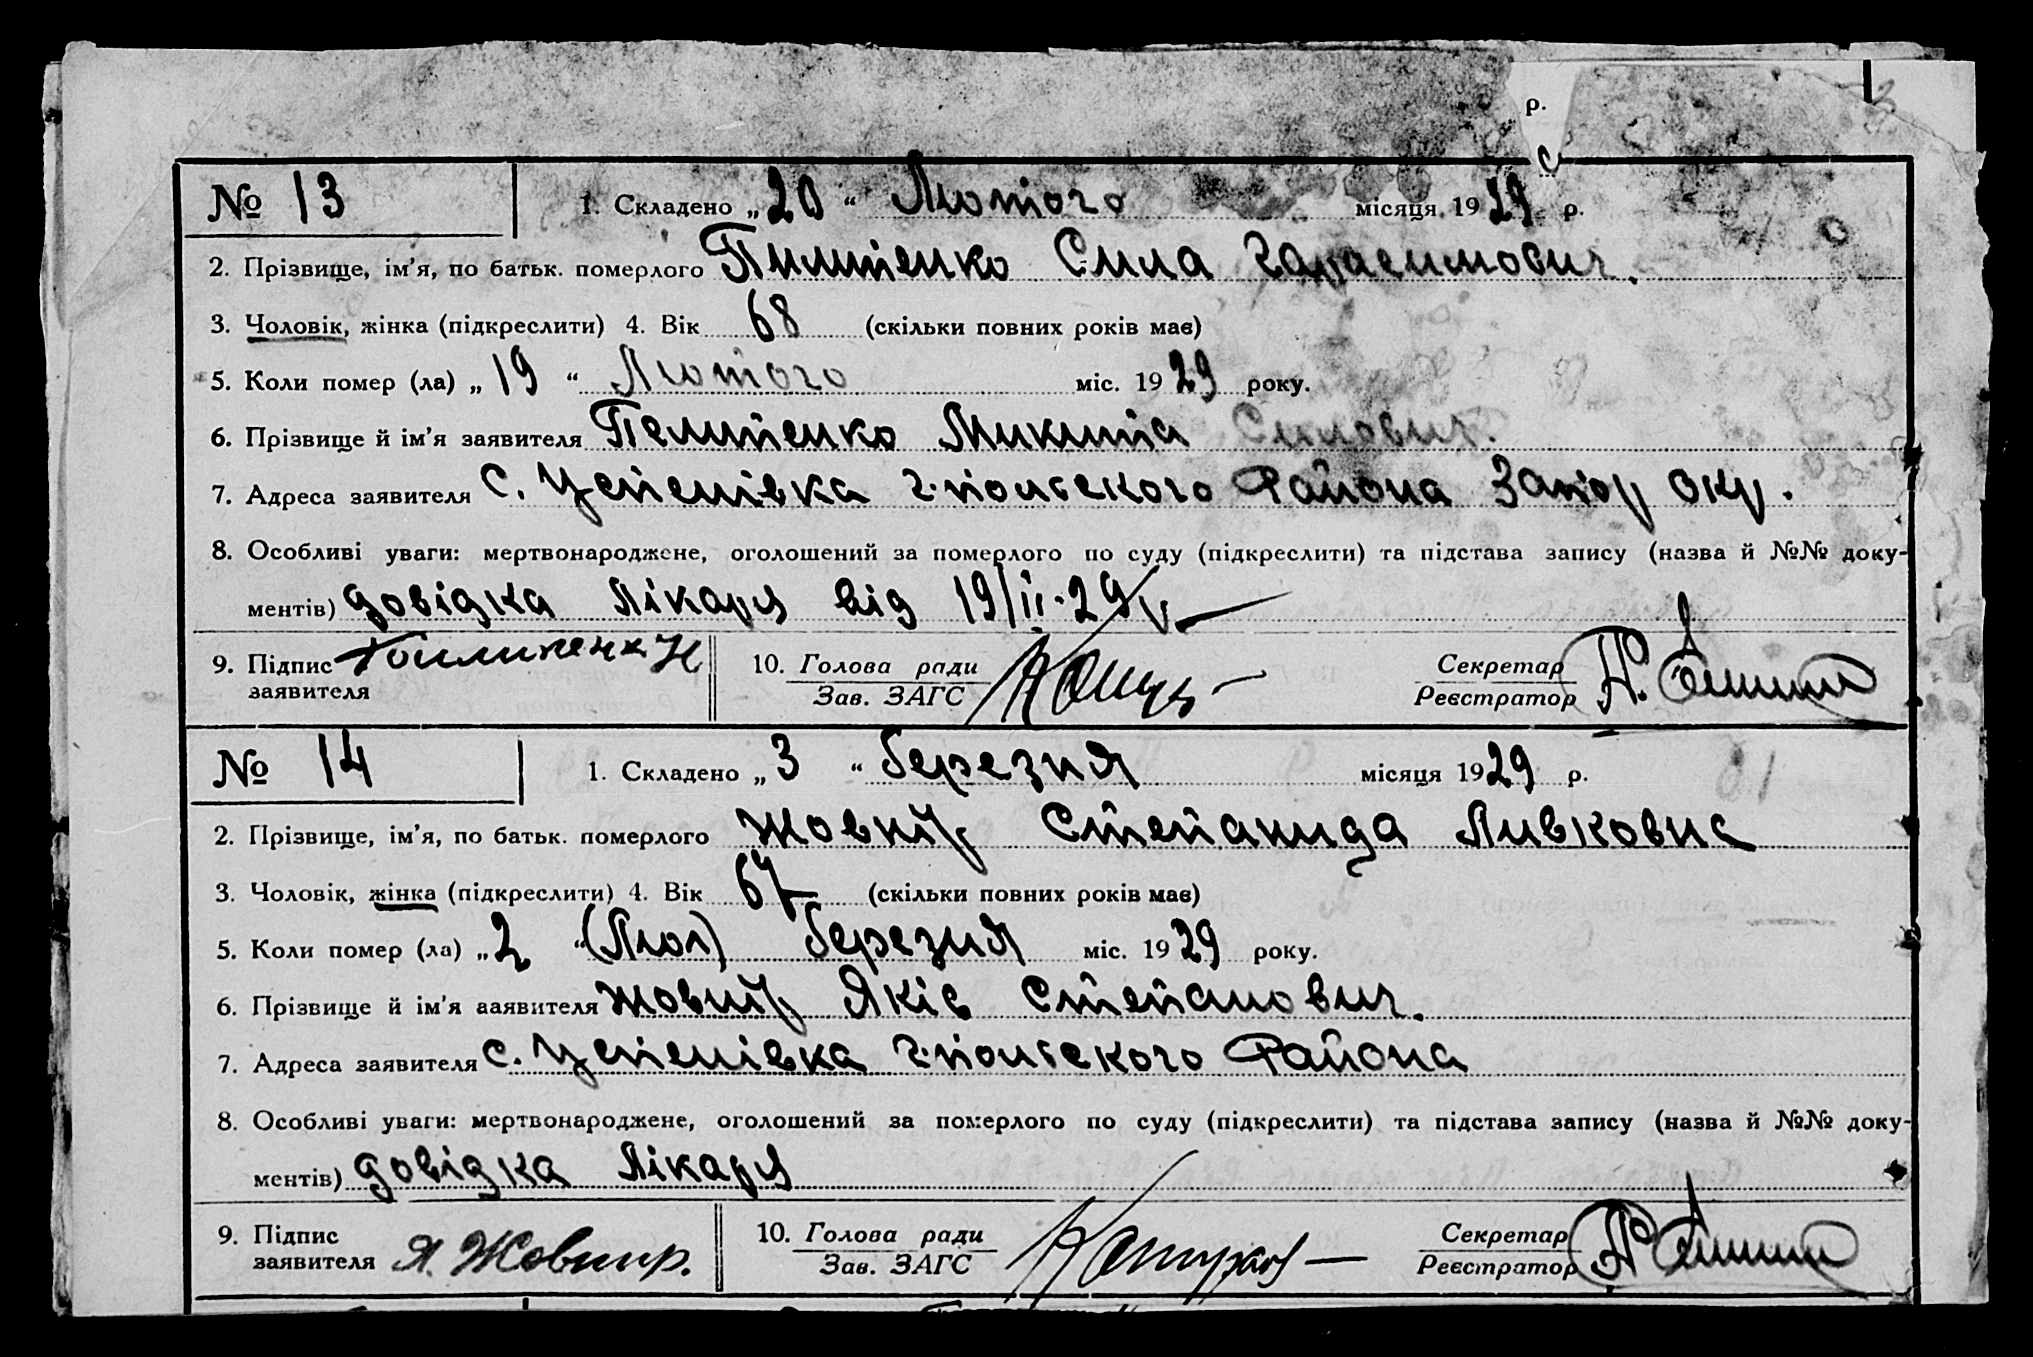 р.
№ 13 1. Складено „20“ Лютого місяця 1929 р.
2. Прізвище, ім'я, по батьк. померлого Пилипенко Сила Гарасимович.
3. Чоловік, жінка (підкреслити) 4. Вік 68 (скільки повних років має)
5. Коли помер (ла) „19“ Лютого міс. 1929 року.
6. Прізвище й ім'я заявителя Пелипенко Микита Силович.
7. Адреса заявителя с. Успенівка г.польського Района Запор окр.
8. Особливі уваги: мертвонароджене, оголошений за померлого по суду (підкреслити) та підстава запису (назва й №№ доку-
ментів) довідка лікаря від 19/II-29р
9. Підпис 10. Голова ради Секретар
заявителя Зав. ЗАГС Реєстратор
№ 14 1. Складено „3“ березня місяця 1929 р.
2. Прізвище, ім'я, по батьк. померлого Жовнір Степанида Ливковна
3. Чоловік, жінка (підкреслити) 4. Вік 67 (скільки повних років має)
5. Коли помер (ла) „2“ березня міс. 1929 року.
6. Прізвище й ім'я заявителя Жовнір Яків Степанович.
7. Адреса заявителя с. Успенівка г.польського Района
8. Особливі уваги: мертвонароджене, оголошений за померлого по суду (підкреслити) та підстава запису (назва й №№ доку-
ментів) довідка лікаря
9. Підпис 10. Голова ради Секретар
заявителя Я. Жовнир. Зав. ЗАГС Реєстратор